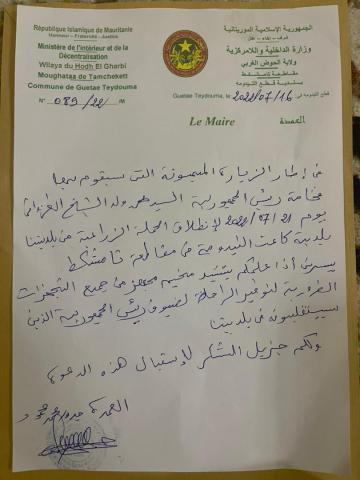 République Islamique de Mauritanie
Honneur – Fraternité – Justice
Ministère de l'intérieur et de la
Décentralisation
Wilaya du Hodh El Gharbi
Moughataa de Tamchekett
Commune de Guetae Teydouma
N° 089/22 /M
الجمهورية الإسلامية الموريتانية
شرف - إخاء - عدل
وزارة الداخلية واللامركزية
ولاية الحوض الغربي
مقاطعة تامشكط
بلدية قطع التيدومه
Guetae Teydouma, le 2022/07/16 قطع التيدومه في
Le Maire العمدة
في إطار الزيارة الميمونة التي سيقوم بها
فخامة رئيس الجمهورية السيد محمد ولد الشيخ الغزواني
يوم 2022/07/21 لإنطلاق الحملة الزراعية من بلديتنا
بلدية كاعت التيدومة من مقاطعة تامشكط
يسرني أن أعلمكم بتشييد مخيم مجهز من جميع التجهزات
الضرورية لتوفير الراحة لضيوف رئيس الجمهورية الذين
سيستقلبون في بلديتنا
ولكم جزيل الشكر لإستقبال هذه الدعوة
العمدة